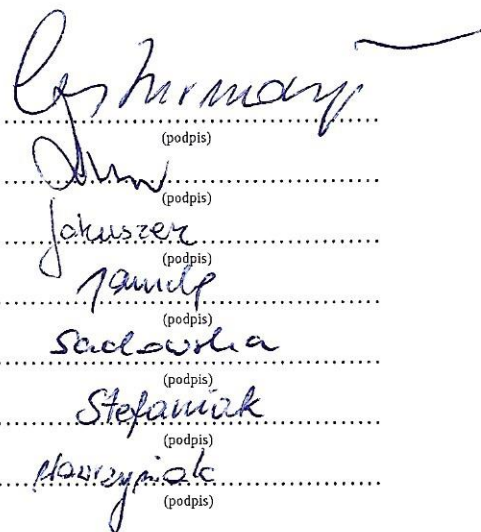 (podpis)
(podpis)
Jakuszek
(podpis)
(podpis)
Sadowska
(podpis)
Stefaniak
(podpis)
Wawrzyniak
(podpis)